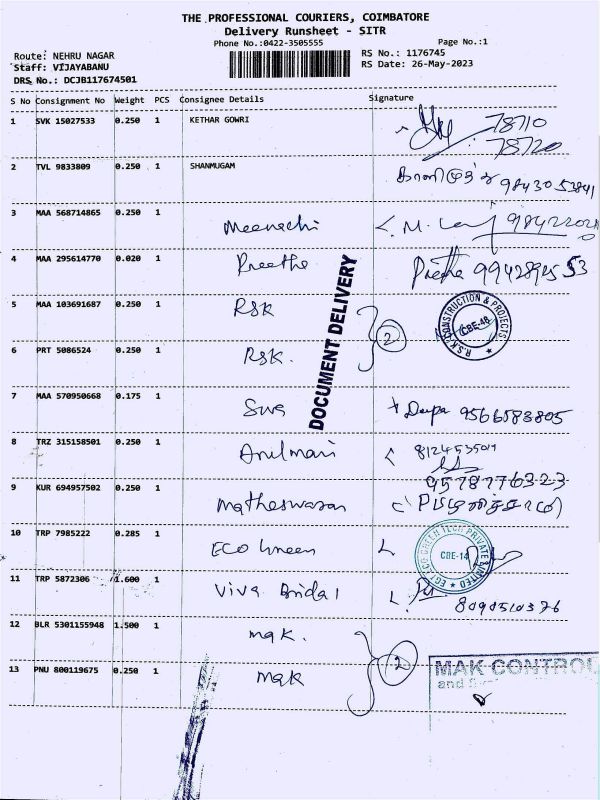 THE PROFESSIONAL COURIERS, COIMBATORE
Delivery Runsheet - SITR
Phone No.:0422-3505555
Page No.:1
Route: NEHRU NAGAR
RS No.: 1176745
Staff: VIJAYABANU
RS Date: 26-May-2023
DRS No.: DCJB117674501
S No Consignment No Weight PCS Consignee Details Signature
1 SVK 15027533 0.250 1 KETHAR GOWRI 78710
78720
2 TVL 9833809 0.250 1 SHANMUGAM 98430 53841
3 MAA 568714865 0.250 1 Meenachi M.
4 MAA 295614770 0.020 1 Preetha Preetha
DOCUMENT DELIVERY
5 MAA 103691687 0.250 1 RSK
R.S.K CONSTRUCTION & PROJECTS CBE-48
2
6 PRT 5086524 0.250 1 RSK.
7 MAA 570950668 0.175 1 Deepa 9566583805
8 TRZ 315158501 0.250 1
9 KUR 694957502 0.250 1 Matheswaran 9578776323
10 TRP 7985222 0.285 1 ECO Green
GREEN TECH PRIVATE LIMITED CBE-14
11 TRP 5872306 1.600 1 Viva Bridal
12 BLR 5301155948 1.500 1 mak.
2
MAK CONTROL
and
13 PNU 800119675 0.250 1 mak